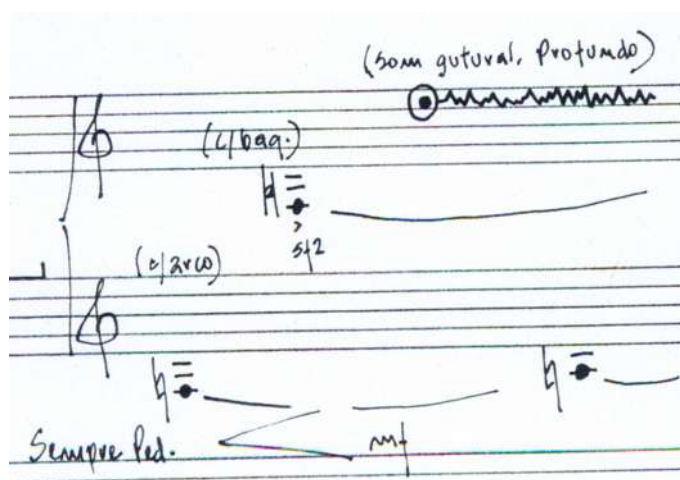 (som gutural, profundo)
(c/baq.)
sfz
(c/arco)
Sempre Ped.
mf